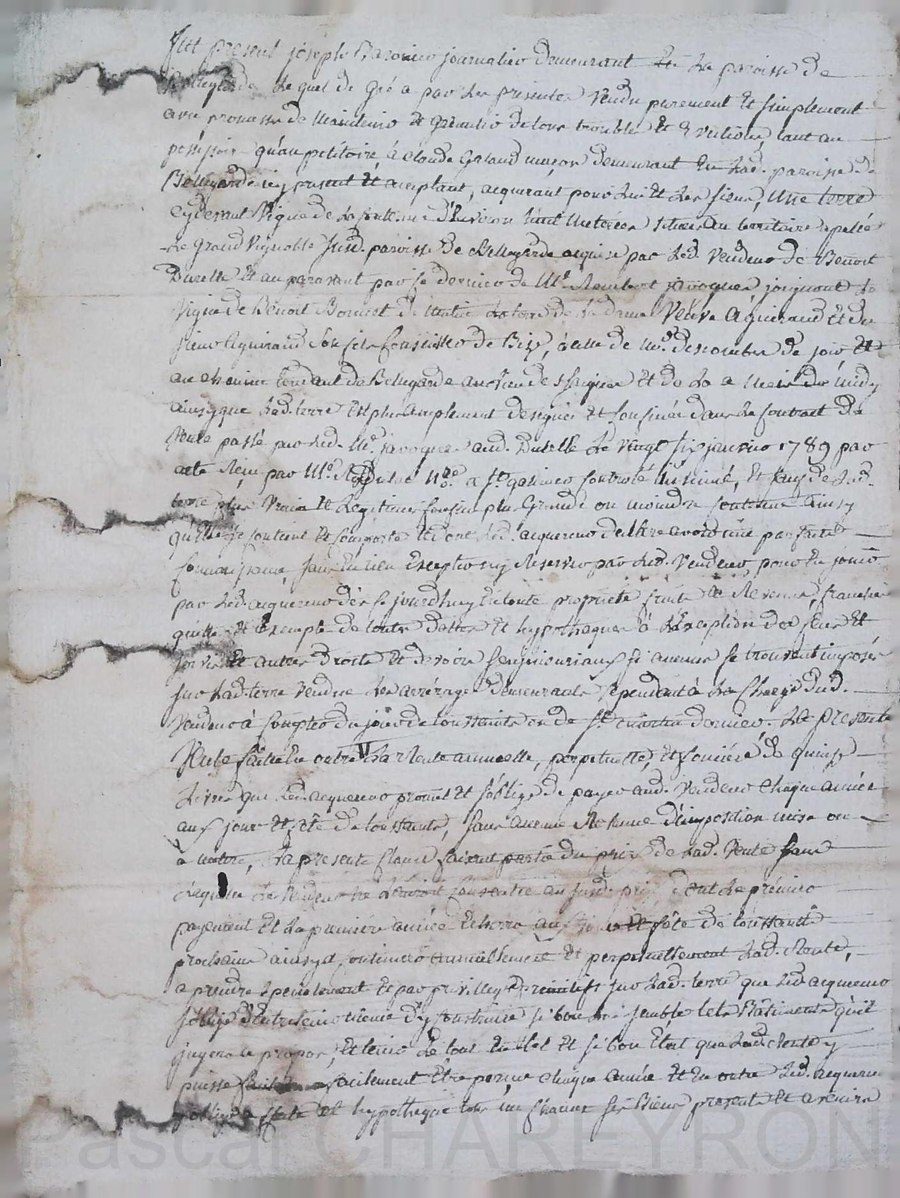 Fut présent joseph journalier demeurant En La paroisse de
Bellegarde Lequel de Gré a par Les presentes Vendu purement Et simplement
avec promesse de Maintenir Et Garentir de tous troubles Et Evictions, tant au
possessoir qu'au petitoire, à Claude Galand maçon demeurant En Lad. paroisse de
Bellegarde icy présent Et acceptant, acquérant pour Lui Et Les siens, Une terre
cydevant Vigne de La contenue d'Environ huit Meterées située au territoire apellé
Le Grand Vignoble Susd. paroisse de Bellegarde acquise par Led. Vendeur de Benoit
Durelle Et auparavant par ce dernier de Mr. joignant La
Vigne de Benoit de matin La terre de La dame Veuve Aguiraud Et du
sieur Aguiraud son fils de Bize, celle de Mr. de soir, Et
au chemin tendant de Bellegarde a Et de La a midy
ainsy que Lad. terre Est plus amplement designée Et confinée dans Le Contract de
Vente passé par Led. Mr. aud. Durelle Le Vingt six janvier 1789 par
acte Reçu par Me. Nre. a St. galmier Controlé Et insinué, Et sauf de Lad.
terre plus Vrais Et Legitimes confins, plus Grande ou moindre Contenue ainsy
qu'elle se contient Et comporte Et dont Led. acquereur declare avoir une parfaite
connoissance, sans En rien Excepter ny Reserver par Led. Vendeur, pour En jouir
par Led. acquereur dès ce jourd'huy En toute propriété fruits Et Revenus, franche
quitte Et Exempte de toutes dettes Et hypotheques à L'Exception des cens Et
servis Et autres droits Et devoirs seigneuriaux si aucuns se trouvent imposés
sur Lad. terre Vendue Les arrérages demeurants cependant à La Charge dud.
Vendeur à Compter du jour de toussaints ou de St. martin dernier. La présente
Vente faitte En outre La Rente annuelle, perpetuelle, Et fonciere de quinze
Livres que Led. acquereur promet Et s'oblige de payer aud. Vendeur chaque année
aux jour Et fête de toussaints, sans aucune Retenue d'imposition mise ou
à mettre, La presente Clause faisant partie du prix de Lad. Vente sans
Laquelle Le Vendeur Ne L'auroit consentie au susd. prix, dont Le prémier
payement Et La premiere année Echerra aux jour Et fête de toussaints
prochaine ainsy a Continuer annuellement Et perpetuellement Lad. Rente,
a prendre specialement Et par privillege primitif sur Lad. terre que Led. acquereur
s'oblige d'Entretenir même d'y construire si bon Lui semble Les Bâtiments qu'il
jugera a propos, Et tenir Le tout En tel Et si bon Etat que Lad. Rente y
puisse facilement Être perçue chaque année Et En outre Led. acquereur
oblige affecte Et hypotheque tous un Chacun ses Biens présents Et avenirs
Pascal CHAREYRON